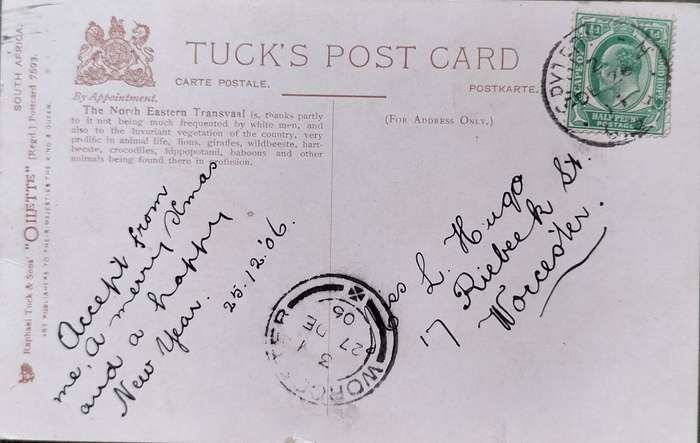 TUCK'S POST CARD
CARTE POSTALE.
POSTKARTE.
By Appointment.
(FOR ADDRESS ONLY.)
The North Eastern Transvaal is, thanks partly
to it not being much frequented by white men, and
also to the luxuriant vegetation of the country, very
prolific in animal life, lions, giraffes, wildbeeste, hart-
beeste, crocodiles, hippopotami, baboons and other
animals being found there in profusion.
SOUTH AFRICA.
Raphael Tuck & Sons' "OILETTE" (Regd.) Postcard 7593.
ART PUBLISHERS TO THEIR MAJESTIES THE KING & QUEEN.
Accept from
me, A merry Xmas
and a happy
New Year.
25.12.'06.
Miss L. Hugo
17 Riebeek St.
Worcester.
CAPE OF GOOD HOPE
HALF PENNY
POSTAGE
WORCESTER
3
27
DE
06